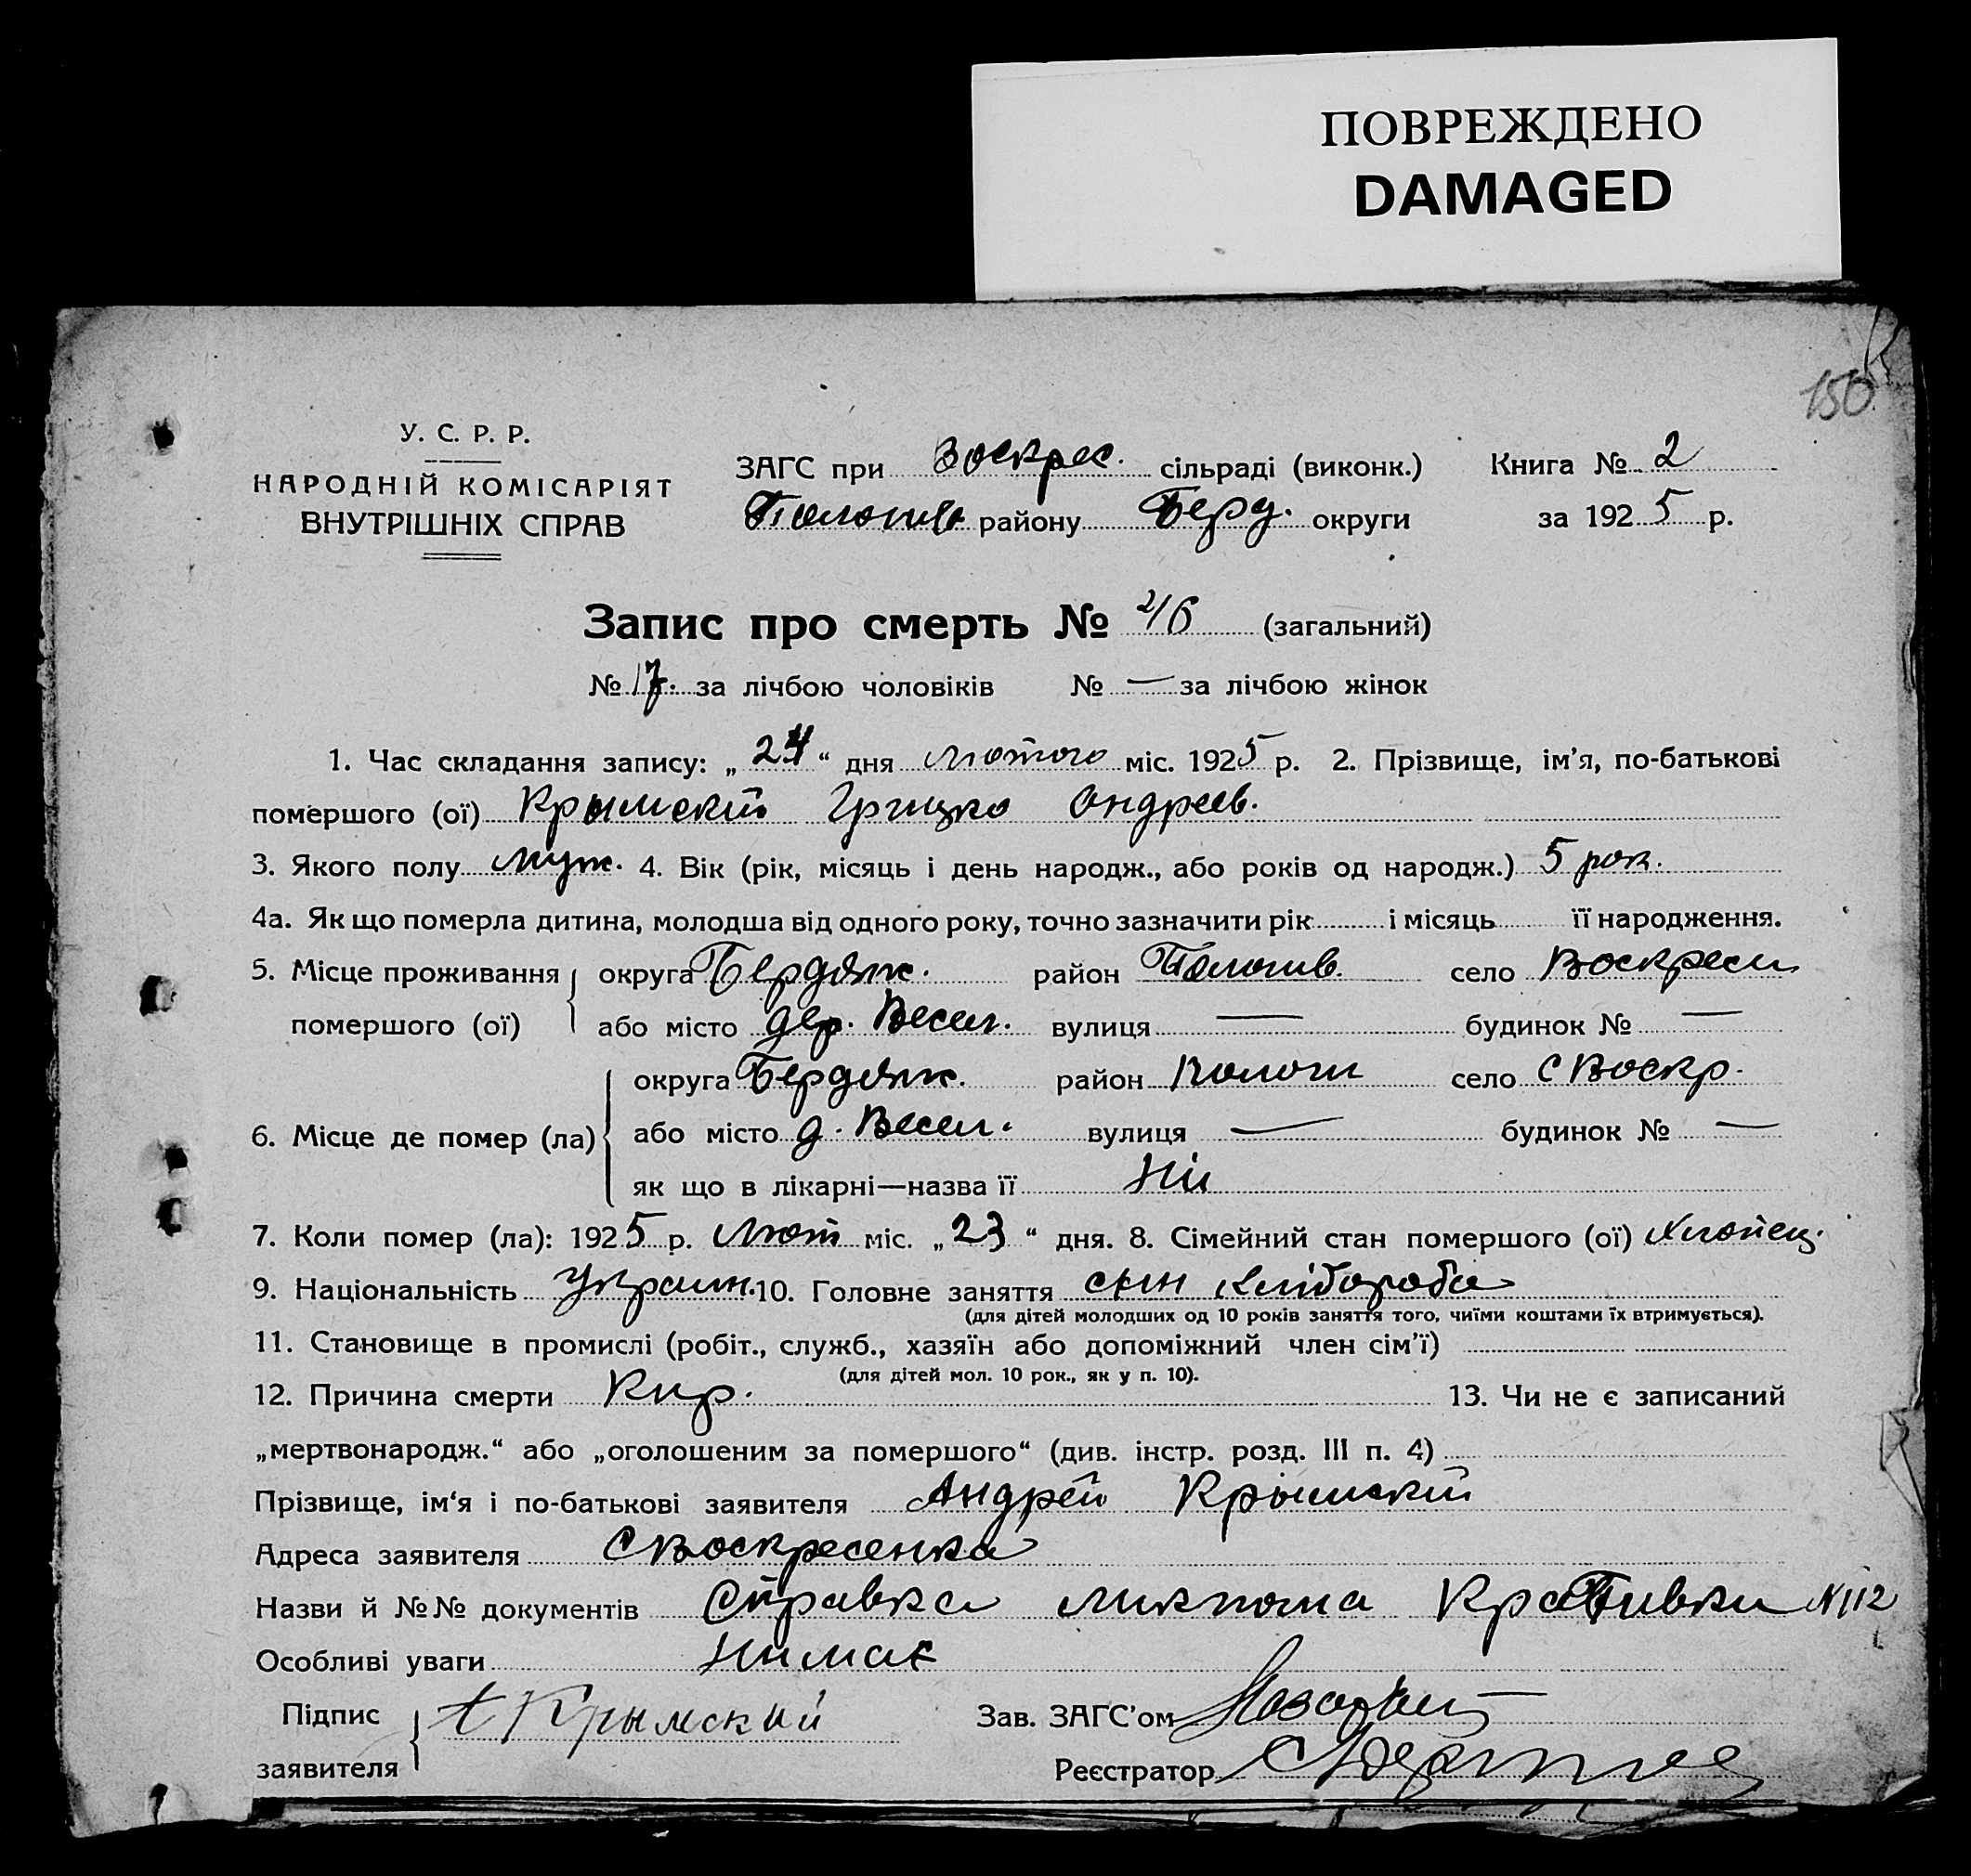 ПОВРЕЖДЕНО
DAMAGED
150
У. С. Р. Р.
НАРОДНІЙ КОМІСАРІЯТ
ВНУТРІШНІХ СПРАВ
ЗАГС при Воскрес. сільраді (виконк.) Книга № 2
району Берд. округи за 1925 р.
Запис про смерть № (загальний)
№ 17. за лічбою чоловіків № — за лічбою жінок
1. Час складання запису: „24“ дня лютого міс. 1925 р. 2. Прізвище, ім'я, по-батькові
помершого (ої) Крымский Грицко Андреев.
3. Якого полу муж. 4. Вік (рік, місяць і день народж., або років од народж.) 5 рок.
4а. Як що померла дитина, молодша від одного року, точно зазначити рік і місяць її народження.
5. Місце проживання округа Бердянс. район Пологив. село Воскресен
помершого (ої) або місто дер. Весел. вулиця — будинок № —
округа Бердянс. район Пологи село С Воскр.
6. Місце де помер (ла) або місто д. Весел. вулиця — будинок № —
як що в лікарні—назва її Ни
7. Коли помер (ла): 1925 р. Лют міс. „23“ дня. 8. Сімейний стан помершого (ої) Хлопец.
9. Національність Украин. 10. Головне заняття сын хлибороба
(для дітей молодших од 10 років заняття того, чиїми коштами їх втримується).
11. Становище в промислі (робіт., служб., хазяїн або допоміжний член сім'ї)
(для дітей мол. 10 рок., як у п. 10).
12. Причина смерти Кир. 13. Чи не є записаний
„мертвонародж.“ або „оголошеним за помершого“ (див. інстр. розд. III п. 4)
Прізвище, ім'я і по-батькові заявителя Андрей Крымский
Адреса заявителя С Воскресенка
Назви й №№ документів Справка ликпома N 112
Особливі уваги Нимає
Підпис заявителя А Крымский Зав. ЗАГС'ом
Реєстратор